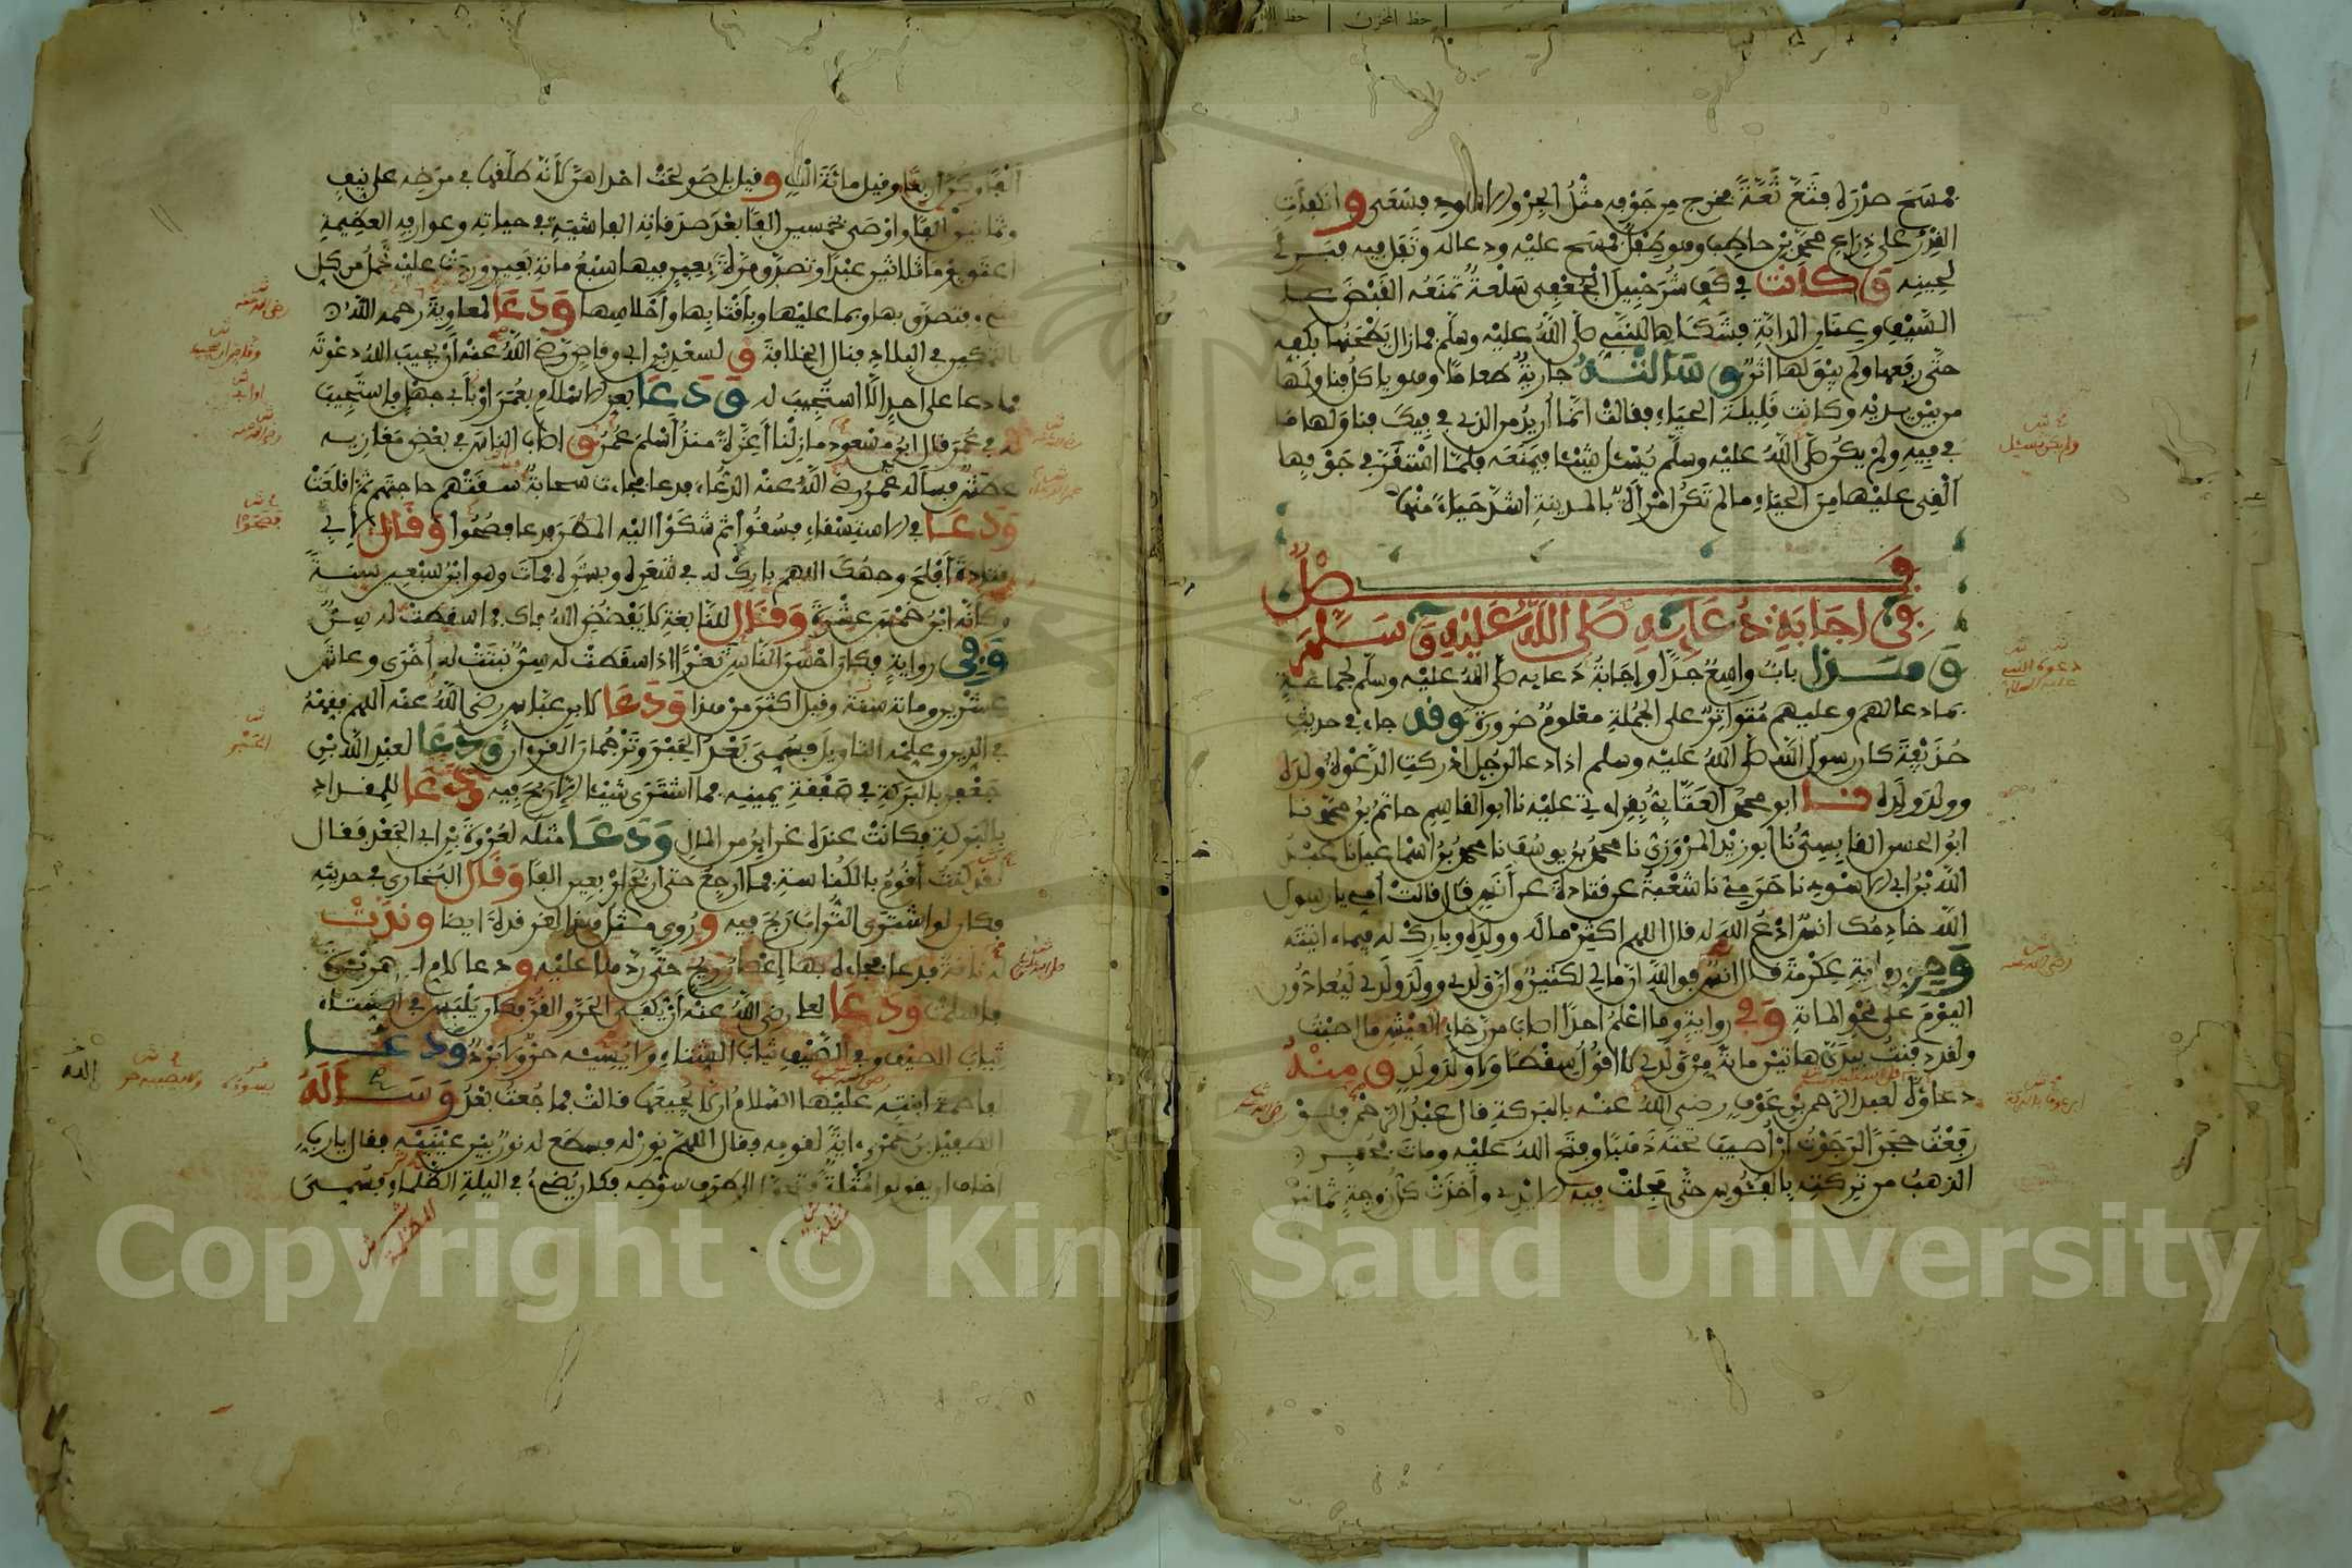 فمسح صدره فثع ثعة فخرج من جوفه مثل الجرو الاسود فشفى وانكفأت
القدر على ذراع محمد بن حاطب وهو طفل فمسح عليه ودعا له وتفل فيه فبرئ
لحينه وكانت في كف شرحبيل الجعفي سلعة تمنعه القبض على
السيف وعنان الدابة فشكاها للنبي صلى الله عليه وسلم فمازال يطحنها بكفه
حتى رفعها ولم يبق لها اثر وسالته جارية طعاما وهو ياكل فناولها
من بين يديه وكانت قليلة الحياء فقالت انما أريد من الذي في فيك فناولها ما
في فيه ولم يكن صلى الله عليه وسلم يسئل شيئا فيمنعه فلما استقر في جوفها
ألقي عليها من الحياء ما لم تكن امرأة بالمدينة اشد حياء منها
فصل
في اجابة دعايه صلى الله عليه وسلم
وهذا باب واسع جدا واجابة دعايه صلى الله عليه وسلم لجماعة
بما دعا لهم وعليهم متواتر على الجملة معلوم ضرورة وقد جاء في حديث
حذيفة كان رسول الله صلى الله عليه وسلم اذا دعا لرجل ادركت الدعوة ولده
وولد ولده نا ابو محمد العتابي بقراءتي عليه نا ابو القاسم حاتم بن محمد نا
ابو الحسن القابسي نا ابو زيد المروزي نا محمد بن يوسف نا محمد بن اسماعيل نا عبد
الله بن ابي الاسود نا حرمي نا شعبة عن قتادة عن أنس قال قالت أمي يا رسول
الله خادمك انس ادع الله له قال اللهم اكثر ماله وولده وبارك له فيما ءاتيته
ومن رواية عكرمة قال انس فوالله ان مالي لكثير وان ولدي وولد ولدي ليعادون
اليوم على نحو الماية وفي رواية وما اعلم احدا اصاب من رخاء العيش ما اصبت
ولقد دفنت بيدي هاتين ماية من ولدي لا اقول سقطا ولا ولد ولد ومنه
دعاؤه لعبد الرحمن بن عوف رضي الله عنه بالبركة قال عبد الرحمن فلو
رفعت حجرا لرجوت ان أصيب تحته ذهبا وفتح الله عليه ومات فحفر
الذهب من تركته بالفئوس حتى مجلت فيه الايدي وأخذت كل زوجة ثمانين
ألفا وكن اربعا وقيل ماية الف وقيل بل صولحت احداهن لانه طلقها في مرضه على نيف
وثمانين الفا واوصى بخمسين الفا بعد صدقاته الفاشية في حياته وعوارفه العظيمة
اعتق يوما ثلاثين عبدا وتصدق مرة بعير فيها سبع ماية بعير وردت عليه تحمل من كل
شيء فتصدق بها وبما عليها وبأقتابها وأحلاسها ودعا لمعاوية رحمه الله
بالتمكين في البلاد فنال الخلافة ولسعد بن ابي وقاص رضي الله عنه أن يجيب الله دعوته
فما دعا على احد الا استجيب له ودعا بعز الاسلام بعمر او بأبي جهل فاستجيب
له في عمر قال ابن مسعود مازلنا أعزة منذ أسلم عمر واصاب الناس في بعض مغازيه
عطش فسأله عمر رضي الله عنه الدعاء فدعا فجاءت سحابة فسقتهم حاجتهم ثم اقلعت
ودعا في الاستسقاء فسقوا ثم شكوا اليه المطر فدعا فصحوا وقال لأبي
قتادة أفلح وجهك اللهم بارك له في شعره وبشره فمات وهو ابن سبعين سنة
وكانه ابن خمس عشرة وقال للنابغة لا يفضض الله فاك فما سقطت له سن
وفي رواية فكان احسن الناس ثغرا اذا سقطت له سن نبتت له أخرى وعاش
عشرين وماية سنة وقيل اكثر من هذا ودعا لابن عباس رضي الله عنه اللهم فقهه
في الدين وعلمه التاويل فسمي بعد الحبر وترجمان القرءان ودعا لعبد الله بن
جعفر بالبركة في صفقة يمينه فما اشترى شيئا الا ربح فيه ودعا للمقداد
بالبركة فكانت عنده غراير من المال ودعا مثله لعروة بن ابي الجعد فقال
لقد كنت أقوم بالكناسة فما أرجع حتى اربح اربعين الفا وقال البخاري في حديثه
فكان لو اشترى التراب ربح فيه وروي مثل هذا لغرقدة ايضا وندت
له ناقة فدعا فجاءه بها إعصار ريح حتى ردها عليه ودعا لام ابي هريرة
فاسلمت ودعا لعلي رضي الله عنه أن يكفى الحر والقر فكان يلبس في الشتاء
ثياب الصيف وفي الصيف ثياب الشتاء ولا يصيبه حر ولا برد ودعا
لفاطمة ابنته عليها السلام ان لا يجيعها قالت فما جعت بعد وسأله
الطفيل بن عمرو ءاية لقومه فقال اللهم نور له فسطع له نور بين عينيه فقال يارب
اخاف ان يقولوا مثلة فتحول الى طرف سوطه فكان يضيء في الليلة الظلماء فسمى